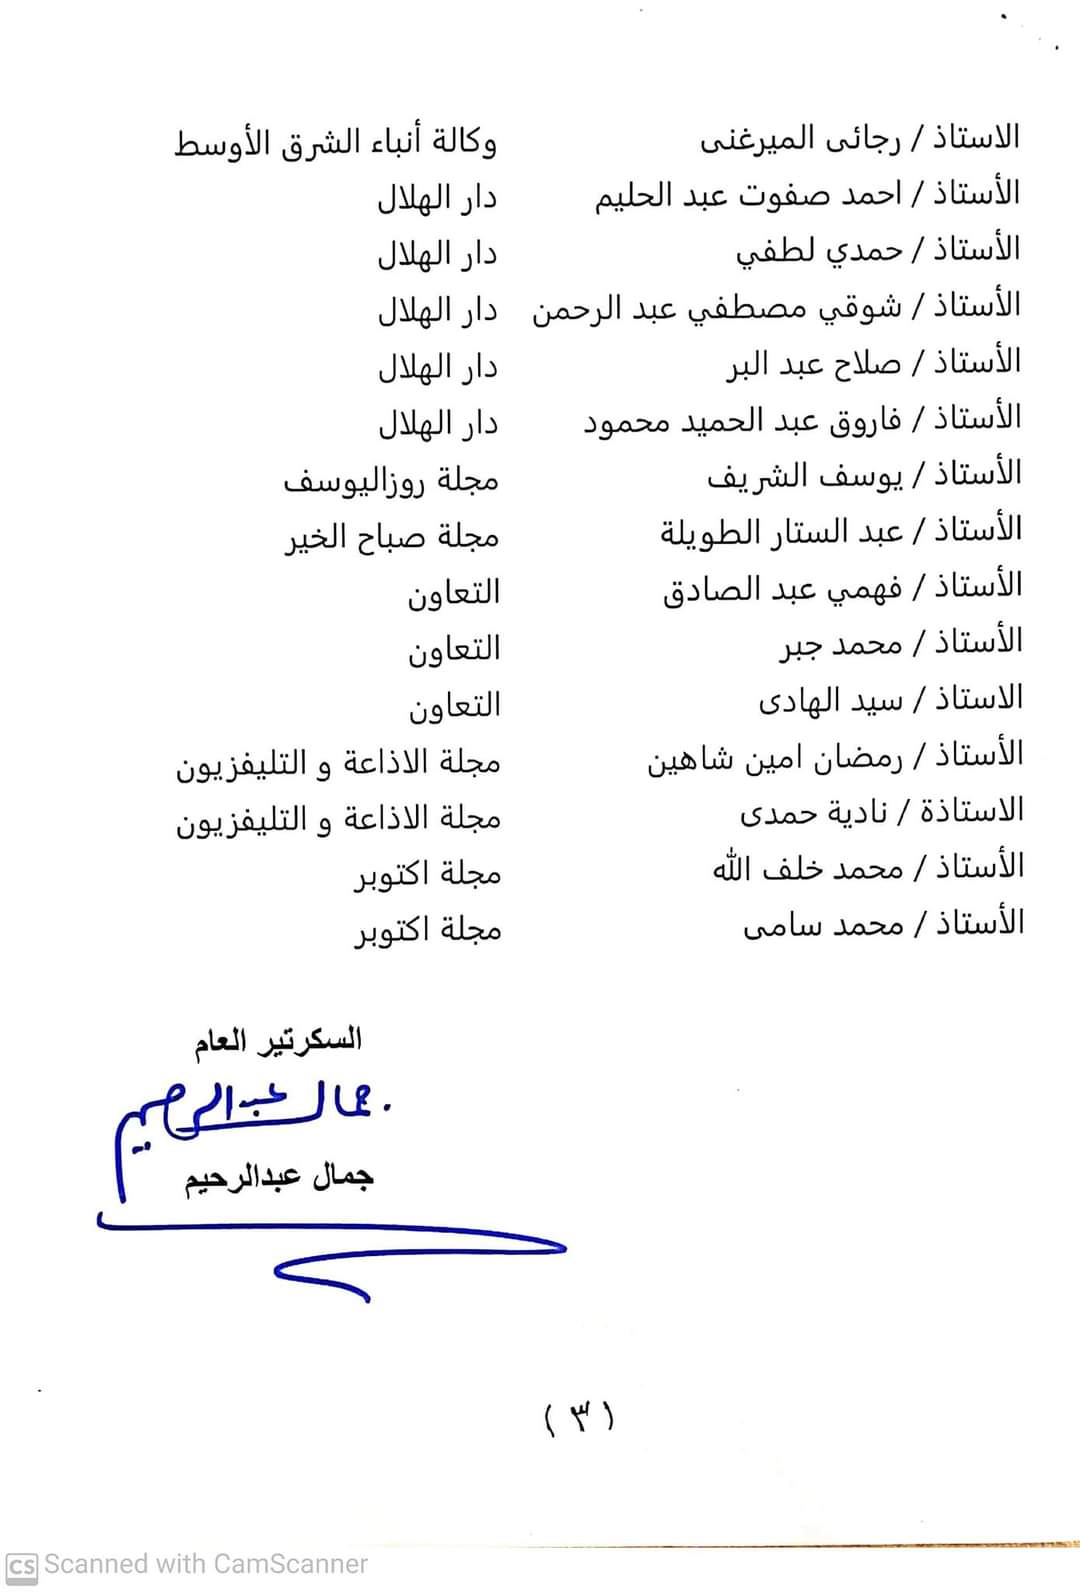 الاستاذ / رجائى الميرغنى وكالة أنباء الشرق الأوسط
الأستاذ / احمد صفوت عبد الحليم دار الهلال
الأستاذ / حمدي لطفي دار الهلال
الأستاذ / شوقي مصطفي عبد الرحمن دار الهلال
الأستاذ / صلاح عبد البر دار الهلال
الأستاذ / فاروق عبد الحميد محمود دار الهلال
الأستاذ / يوسف الشريف مجلة روزاليوسف
الأستاذ / عبد الستار الطويلة مجلة صباح الخير
الأستاذ / فهمي عبد الصادق التعاون
الأستاذ / محمد جبر التعاون
الاستاذ / سيد الهادى التعاون
الأستاذ / رمضان امين شاهين مجلة الاذاعة و التليفزيون
الاستاذة / نادية حمدى مجلة الاذاعة و التليفزيون
الأستاذ / محمد خلف الله مجلة اكتوبر
الأستاذ / محمد سامى مجلة اكتوبر
السكرتير العام
جمال عبدالرحيم
جمال عبدالرحيم
( ٣ )
CS Scanned with CamScanner